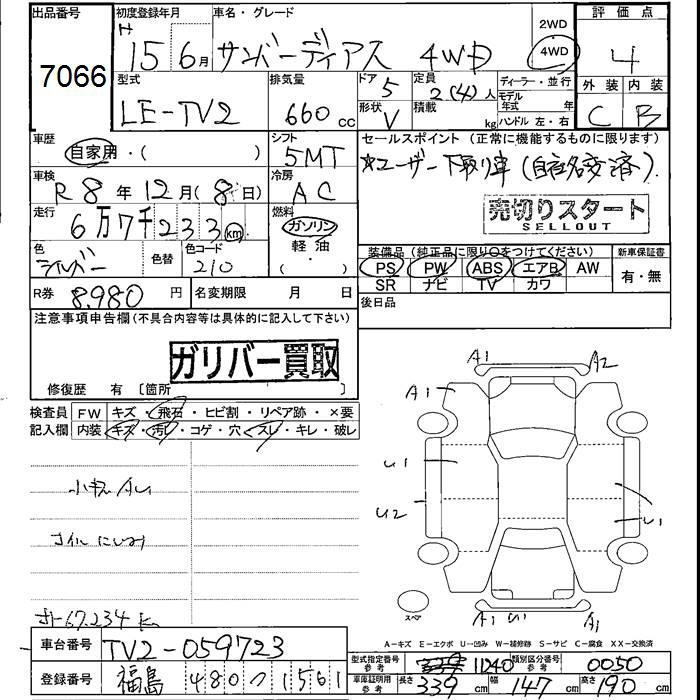 出品番号 7066
初度登録年月 H 15年 6月
車名・グレード サンバーディアス 4WD
2WD 4WD
評価点 4
外装 C 内装 B
型式 LE-TV2
排気量 660 cc
ドア 5
形状 V
定員 2(4)人
積載 kg
ディーラー・並行
モデル年式 年
ハンドル 左・右
車歴 自家用・( )
シフト 5MT
セールスポイント (正常に機能するものに限ります)
☆ユーザー下取り車(自社名変済).
車検 R8年12月(8日)
冷房 AC
売切りスタート
SELLOUT
走行 6万7千233km
燃料 ガソリン 軽油 ( )
色 シルバー 色替
色コード 210
装備品(純正品に限り○をつけてください)
PS PW ABS エアB AW
SR ナビ TV カワ
新車保証書 有・無
R券 8,980円
名変期限 月 日
後日品
注意事項申告欄(不具合内容等は具体的に記入して下さい)
ガリバー買取
修復歴 有 [箇所 ]
検査員 FW キズ・飛石・ヒビ割・リペア跡・×要
記入欄 内装 キズ・汚レ・コゲ・穴・スレ・キレ・破レ
小キズ AU
オイルにじみ
67,234 km
A1 A2
A1
U1
U2
U1
A1 U1 A1
スペア
A-キズ E-エクボ U-凹み W-補修跡 S-サビ C-腐食 XX-交換済
車台番号 TV2-059723
登録番号 福島 480 ツ 1561
型式指定番号 参考 11240
類別区分番号 参考 0050
車庫証明用 参考 長さ 339 cm 幅 147 cm 高さ 190 cm